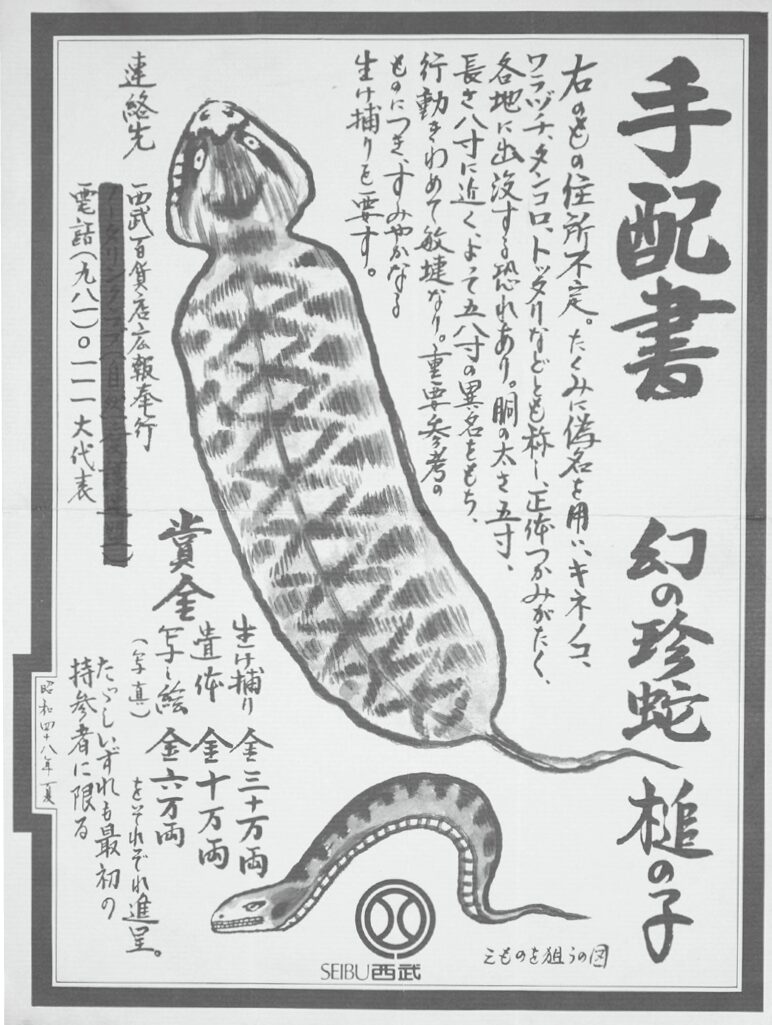 手配書
幻の珍蛇 槌の子
右のもの住所不定。たくみに偽名を用い、キネノコ、
ワラヅチ、タンコロ、トッタリなどとも称し、正体つかみがたく、
各地に出没する恐れあり。胴の太さ五寸、
長さ八寸に近く、よって五八寸の異名をもち、
行動きわめて敏捷なり。重要参考の
ものにつき、すみやかなる
生け捕りを要す。
連絡先
西武百貨店広報奉行
電話(九八一)〇一一一 大代表
賞金
生け捕り 金三十万両
遺体 金十万両
写し絵 金六万両
(写真)
をそれぞれ進呈。
たゞしいずれも最初の
持参者に限る
昭和四十八年 夏
えものを狙うの図
SEIBU西武